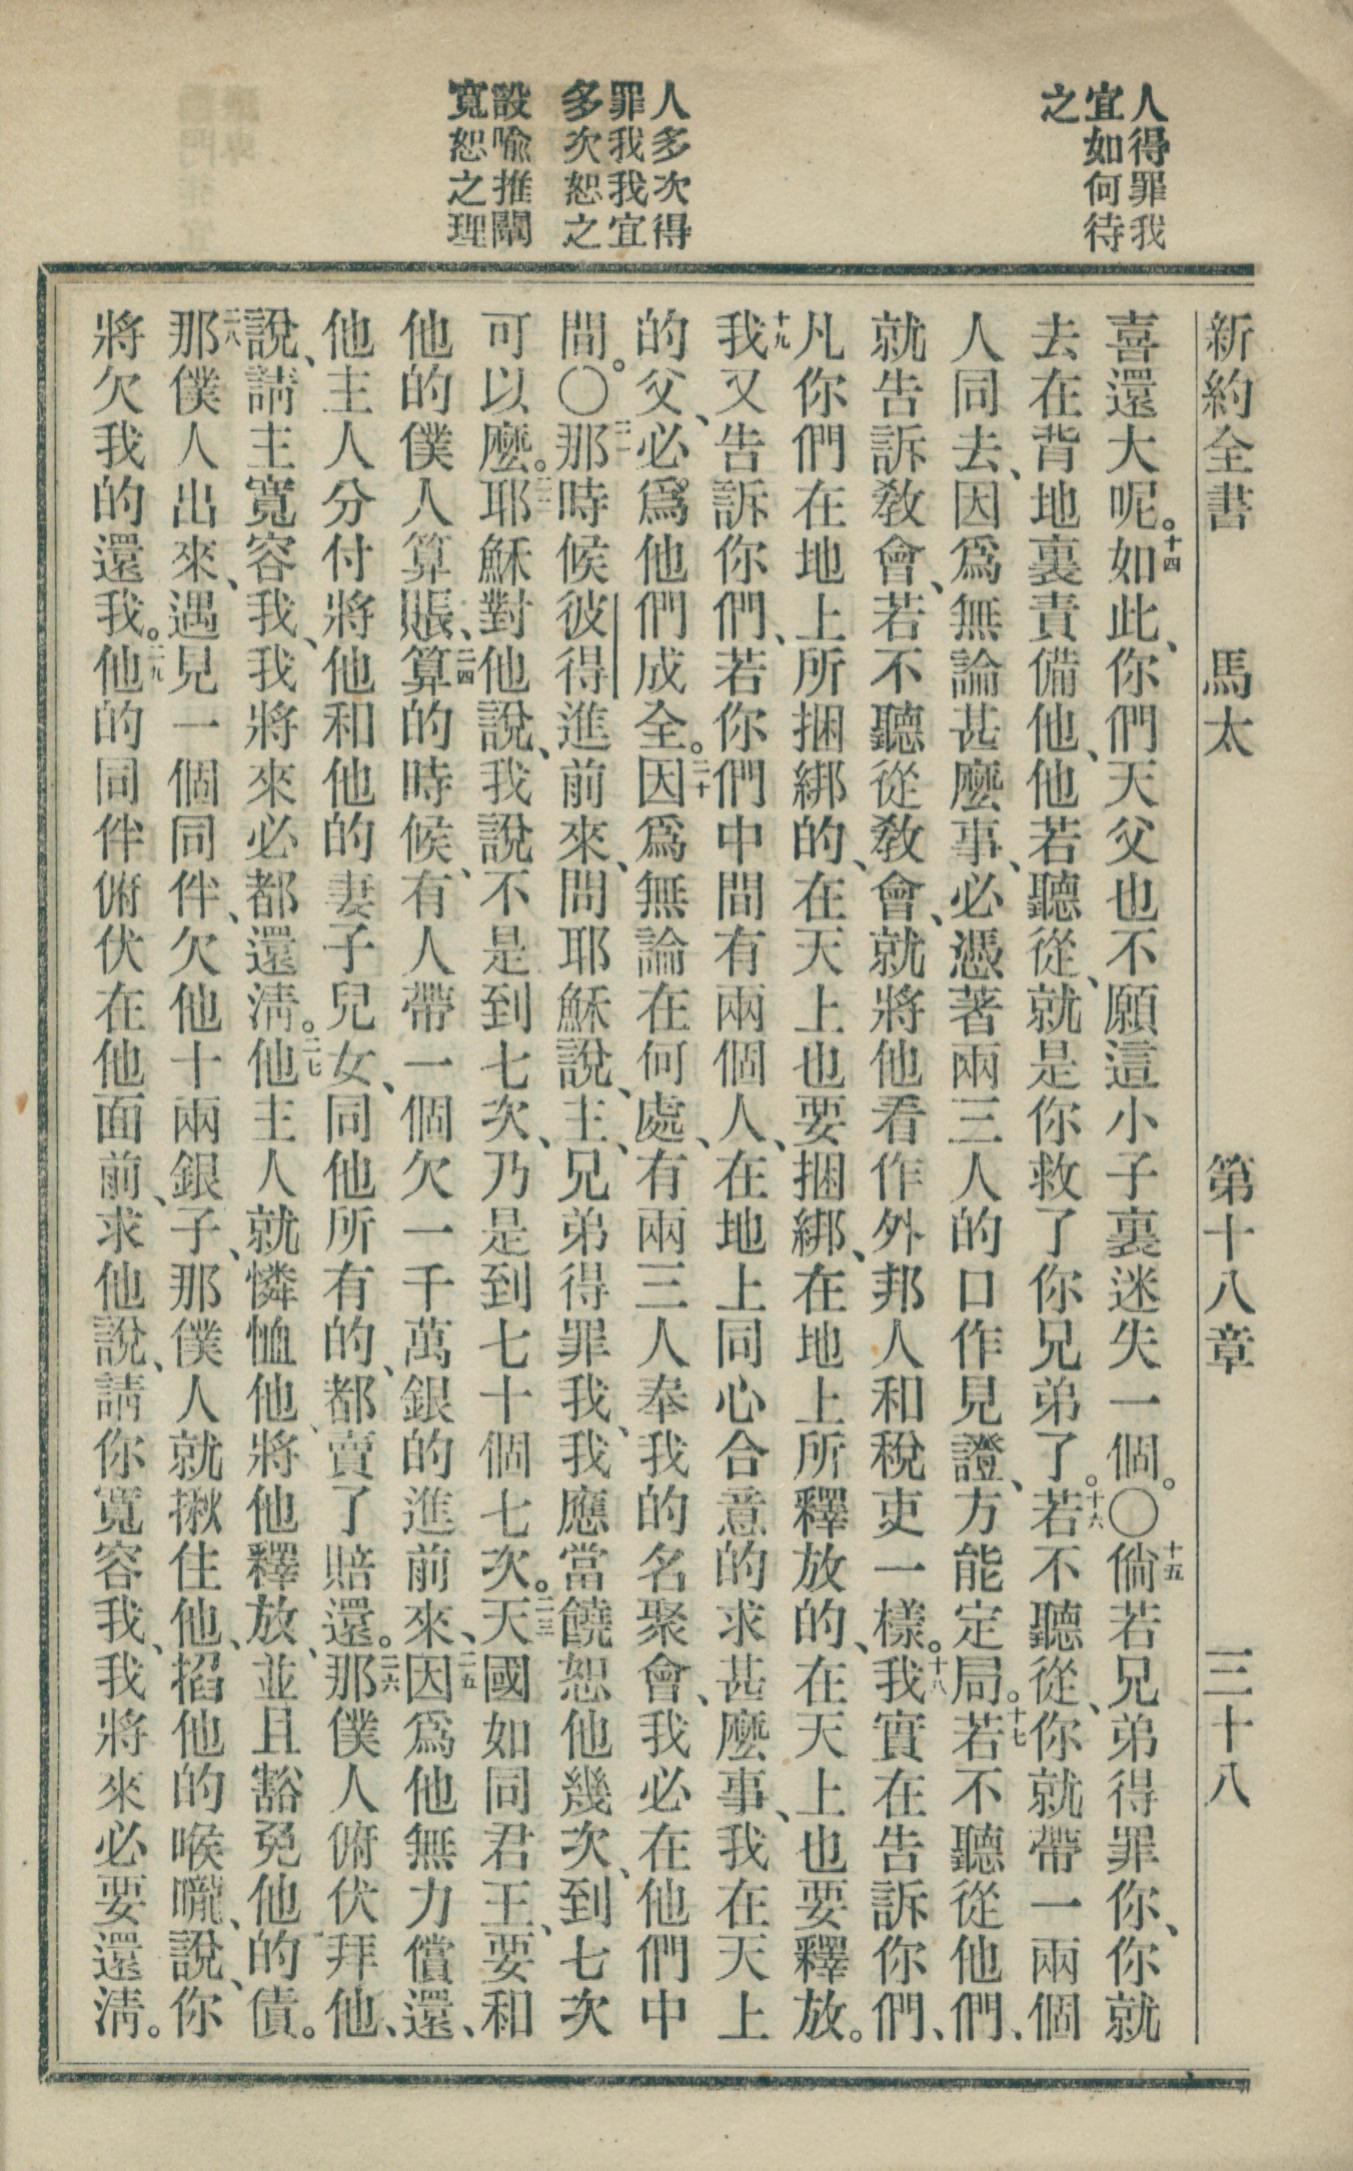 人得罪我
宜如何待
之
人多次得
罪我我宜
多次恕之
設喩推闡
寬恕之理
新約全書　馬太　第十八章　三十八
喜還大呢。十四如此、你們天父也不願這小子裏迷失一個。〇十五倘若兄弟得罪你、你就
去在背地裏責備他、他若聽從、就是你救了你兄弟了。十六若不聽從、你就帶一兩個
人同去、因爲無論甚麼事、必憑著兩三人的口作見證、方能定局。十七若不聽從他們、
就告訴教會、若不聽從教會、就將他看作外邦人和稅吏一樣。十八我實在告訴你們、
凡你們在地上所捆綁的、在天上也要捆綁、在地上所釋放的、在天上也要釋放。
十九我又告訴你們、若你們中間有兩個人、在地上同心合意的求甚麼事、我在天上
的父、必爲他們成全。二十因爲無論在何處、有兩三人奉我的名聚會、我必在他們中
間。〇二一那時候彼得進前來、問耶穌說、主、兄弟得罪我、我應當饒恕他幾次、到七次
可以麼。二二耶穌對他說、我說不是到七次、乃是到七十個七次。二三天國如同君王、要和
他的僕人算賬、二四算的時候、有人帶一個欠一千萬銀的進前來、二五因爲他無力償還、
他主人分付將他和他的妻子兒女、同他所有的、都賣了賠還。二六那僕人俯伏拜他、
說、請主寬容我、我將來必都還淸。二七他主人就憐恤他、將他釋放、並且豁免他的債。
二八那僕人出來、遇見一個同伴、欠他十兩銀子、那僕人就揪住他、掐他的喉嚨、說、你
將欠我的還我。二九他的同伴俯伏在他面前、求他說、請你寬容我、我將來必要還淸。